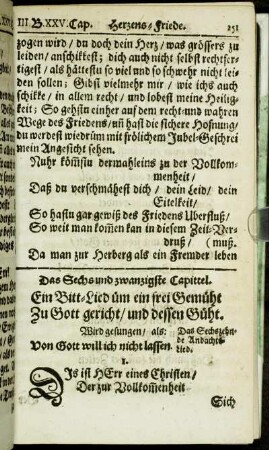 III. B. XXV. Cap. Herzens-Friede. 251
zogen wird / du doch dein Herz / was grössers zu
leiden / anschikkest; dich auch nicht selbst rechtfer-
tigest / als hättestu so viel und so schwehr nicht lei-
den sollen; Gibst vielmehr mir / wie ichs auch
schikke / in allem recht / und lobest meine Heilig-
keit; So gehstu einher auf dem recht- und wahren
Wege des Friedens / uñ hast die sichere Hofnung /
du werdest wiedrüm mit frölichem Jubel-Geschrei
mein Angesicht sehen.
Nuhr kömstu dermahleins zu der Vollkom-
menheit /
Daß du verschmähest dich / dein Leid / dein
Eitelkeit /
So hastu gar gewiß des Friedens Uberfluß /
So weit man kom̃en kan in diesem Zeit-Ver-
druß / (muß.
Da man zur Herberg als ein Fremder leben
Das Sechs und zwanzigste Capittel.
Ein Bitt-Lied üm ein frei Gemüht
Zu Gott gericht / und dessen Güht.
Wird gesungen / als: Das Sechszehn-
de Andachts-
Von Gott will ich nicht lassen. Lied.
1.
Dis ist HErr eines Christen /
Der zur Vollkom̃enheit
Sich